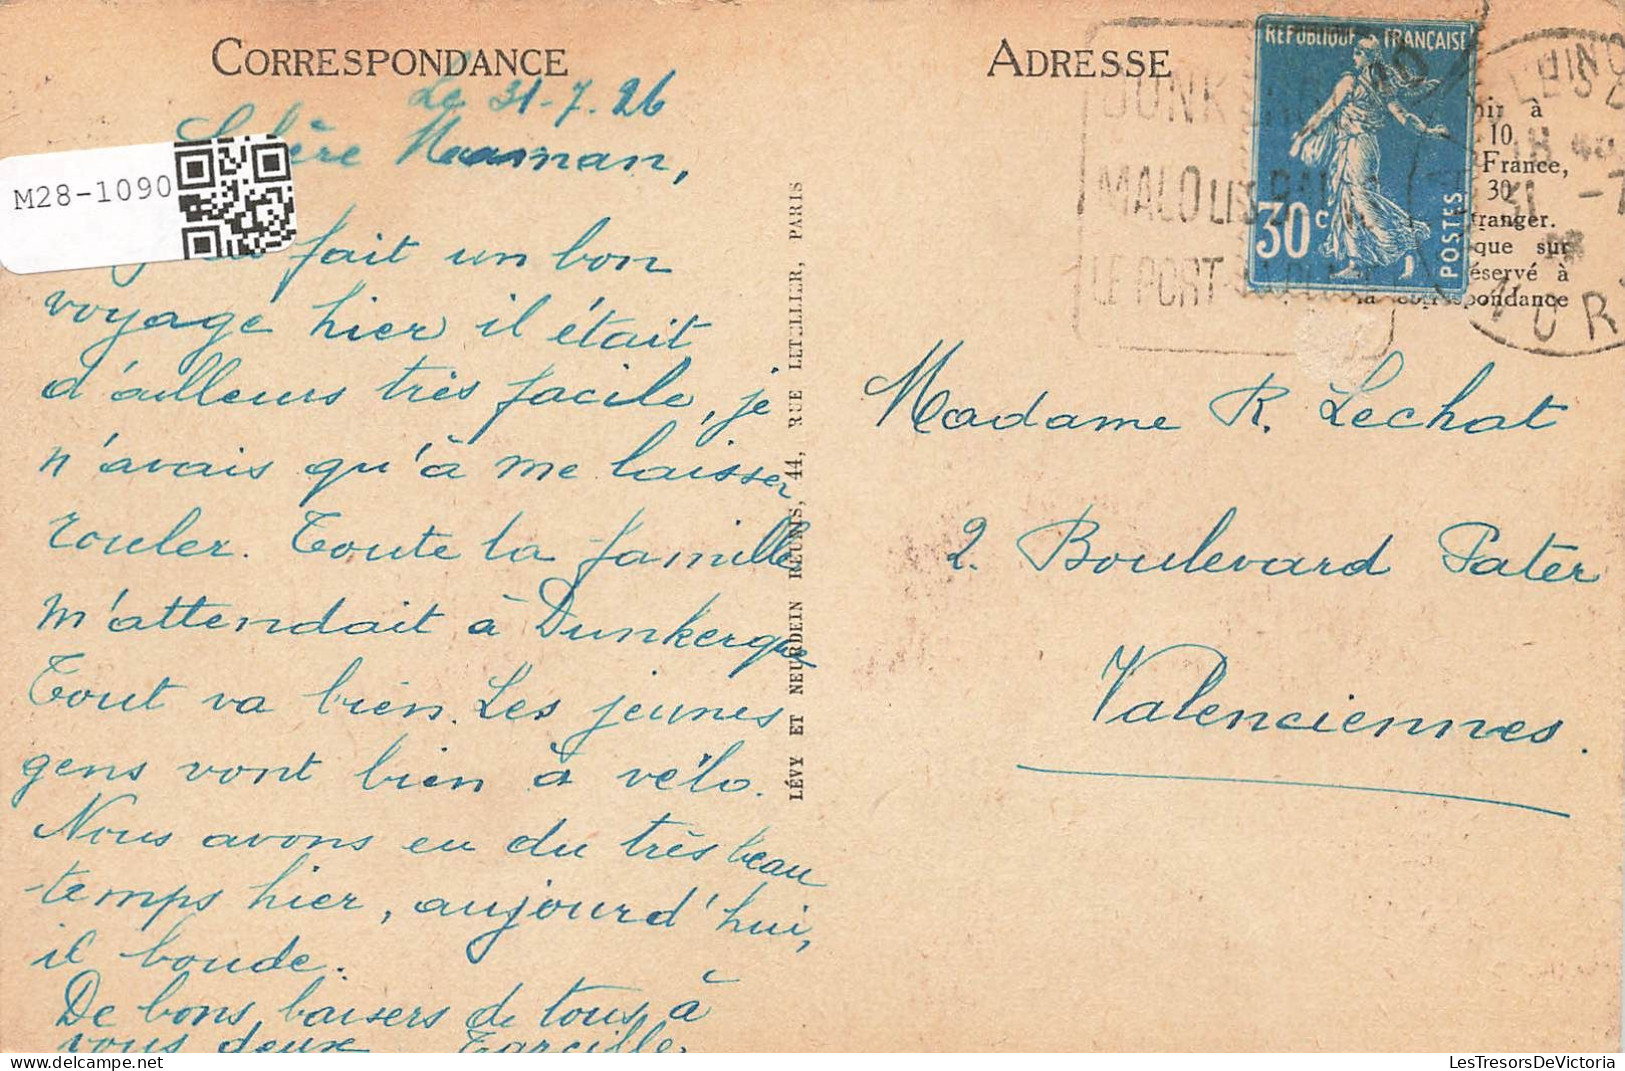 CORRESPONDANCE
Le 31-7.26
Chère Maman,
M28-1090
fait un bon
voyage hier il était
d'ailleurs très facile, je
n'avais qu'à me laisser
rouler. Toute la famille
m'attendait à Dunkerque
Tout va bien. Les jeunes
gens vont bien à vélo.
Nous avons eu du très beau
temps hier, aujourd'hui,
il boude.
De bons baisers de tous à
vous deux
LÉVY ET NEURDEIN RÉUNIS, 44, RUE LETELLIER, PARIS
ADRESSE
MALO LES BAINS
LE PORT
RÉPUBLIQUE FRANÇAISE
30c
POSTES
à
10,
France,
30
tranger.
que sur
éservé à
la correspondance
18
31 -7
Madame R. Lechat
2. Boulevard Pater
Valenciennes.
LesTresorsDeVictoria